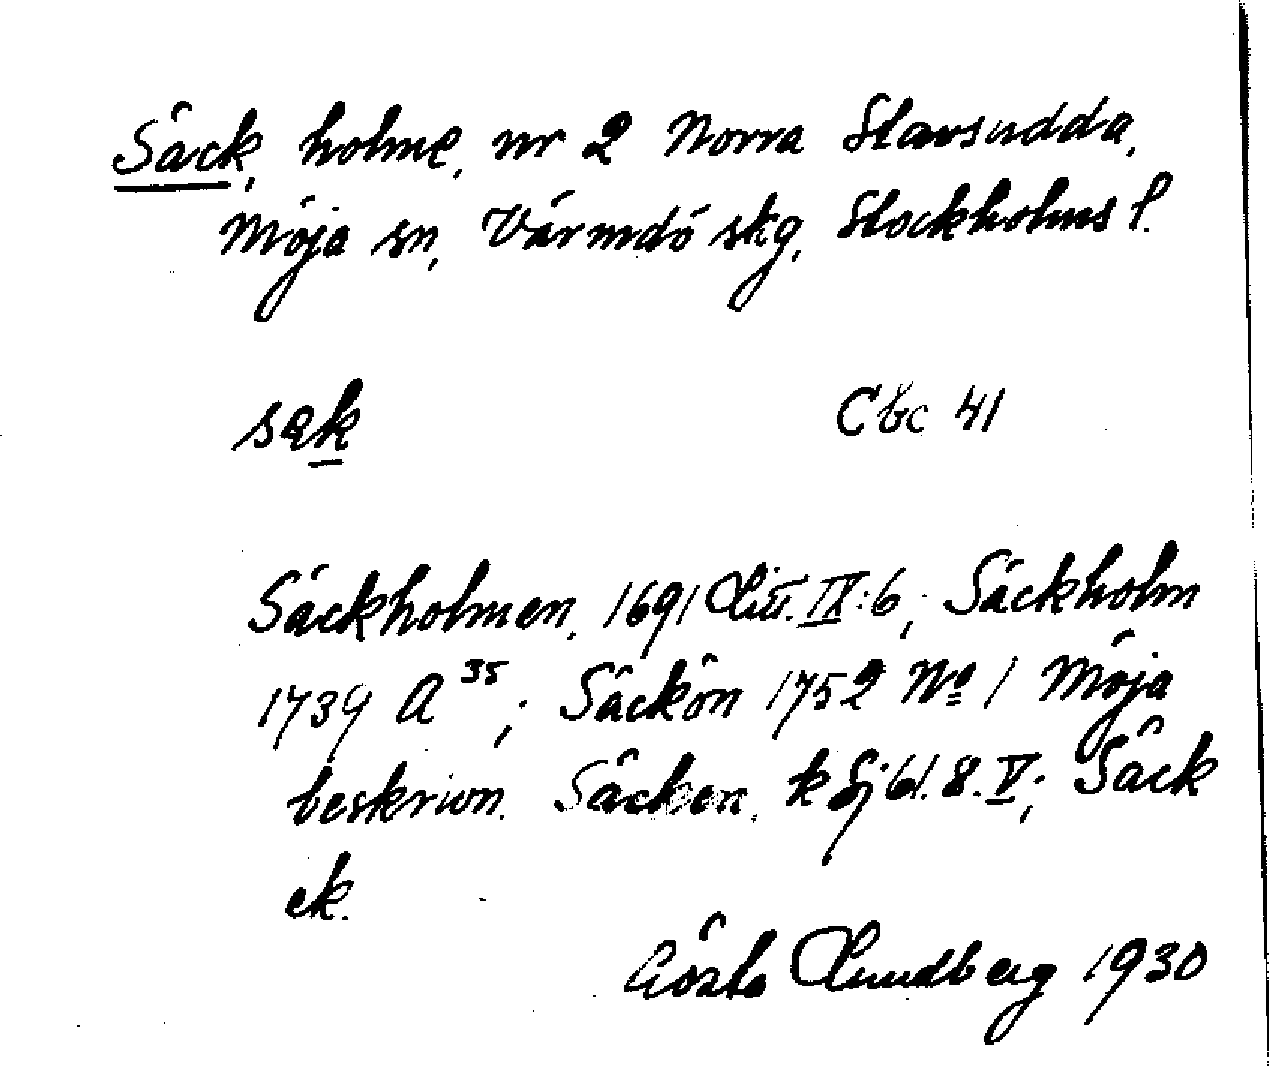 Säck, holme, nr 2 Norra Stavsudda,
Möja sn, Värmdö skg, Stockholms l.
sąk Cbc 41
Säckholmen, 1691 Litt. IX:6; Säckholm
1739 A 35; Säckön 1752 No 1 Möja
beskrivn. Säcken, k Sj bl. 8. V; Säck
ek.
Gösta Lundberg 1930